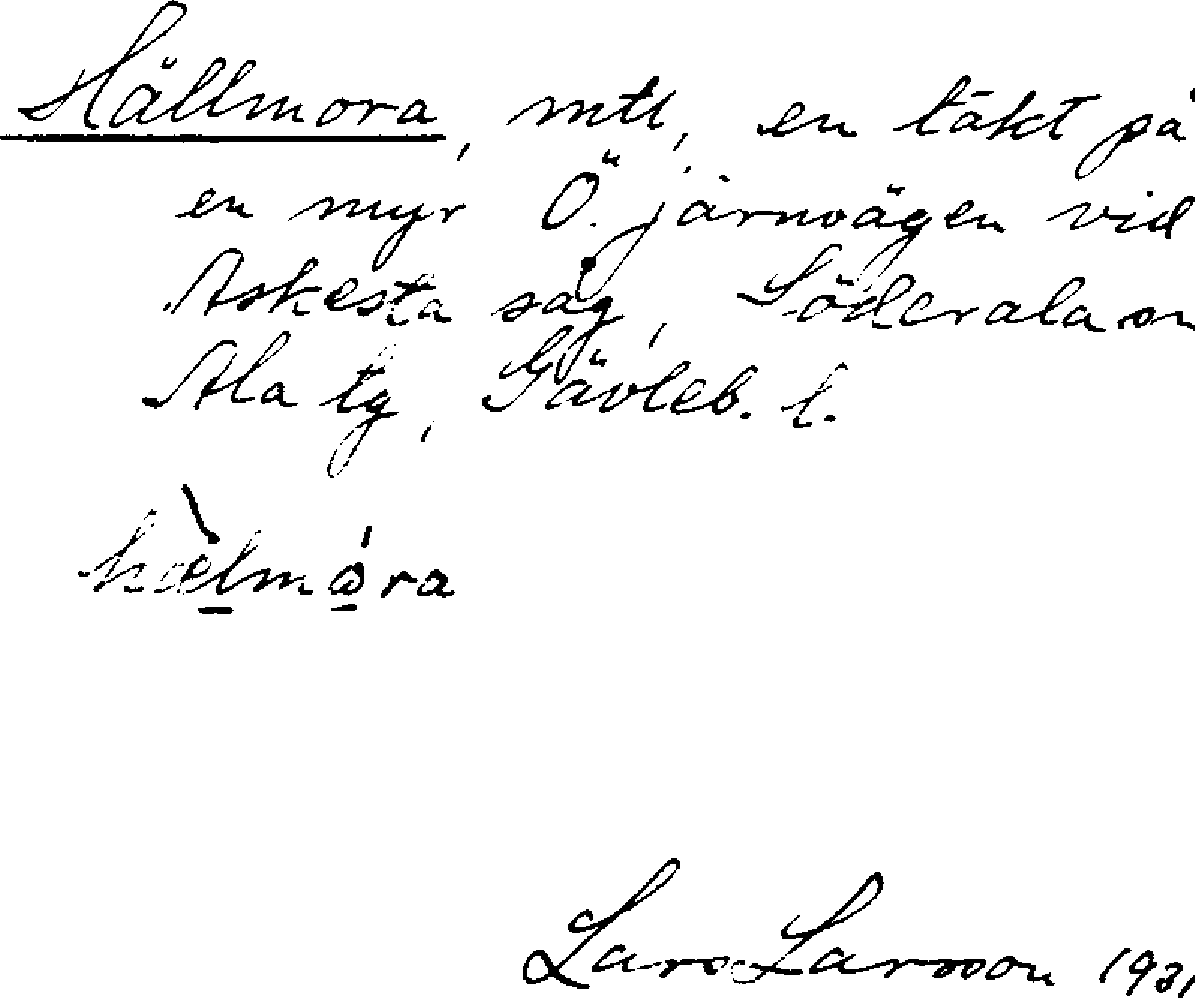 Hällmora, mtl, en täkt på
en myr Ö. järnvägen vid
Askesta såg, Söderala sn
Ala tg, Gävleb. l.
hælmåra
Lars Larsson 1931